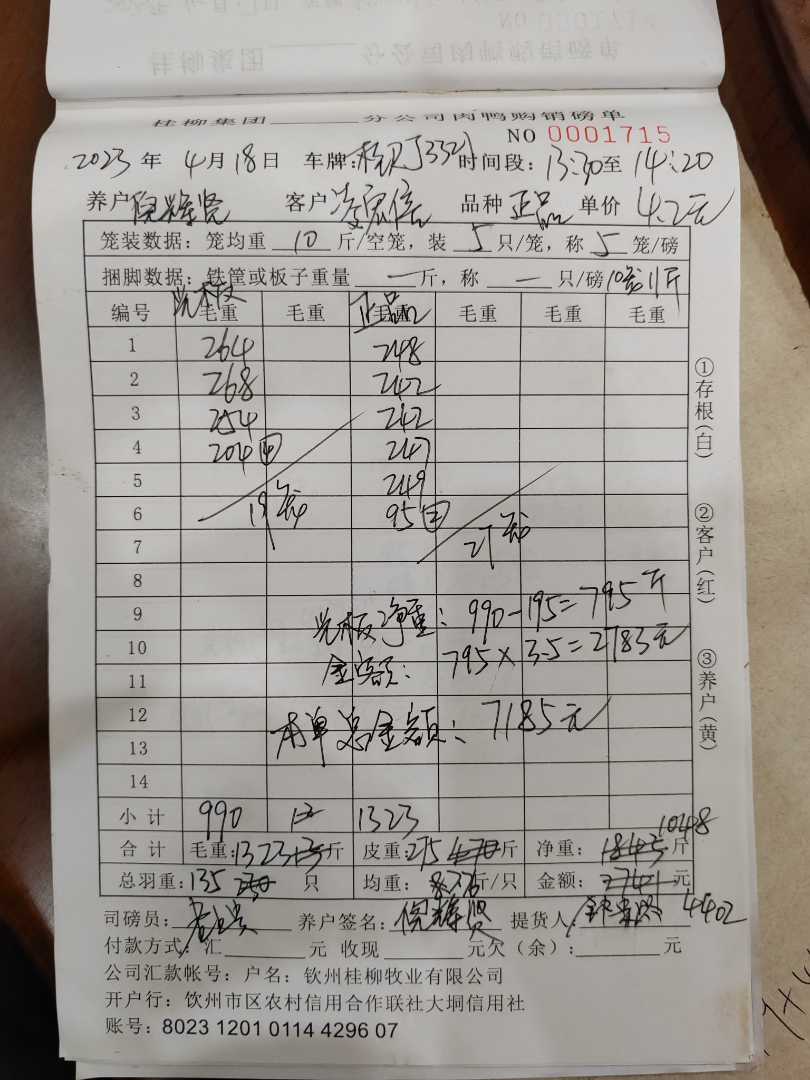 桂柳集团______分公司肉鸭购销磅单
NO 0001715
2023年 4月18日 车牌: 时间段: 13:30至 14:20
养户 倪辉贤 客户 凌宏信 品种 正品 单价 4.2元
笼装数据: 笼均重 10 斤/空笼, 装 5 只/笼, 称 5 笼/磅
捆脚数据: 铁筐或板子重量 一 斤, 称 一 只/磅 11斤
编号 毛重 毛重 正品 毛重 毛重 毛重
1 264 248
2 268 242
3 254 242
4 204④ 247
5 249
6 19 95②
7 27
8
9 净重: 990-195=795斤
10 金额: 795×3.5=2783元
11
12 本单总金额: 7185元
13
14
小计 990 1323
1048
合计 毛重: 1323 斤 皮重: 275 斤 净重: 斤
总羽重: 135 只 均重: 斤/只 金额: 元
司磅员: 养户签名: 倪辉贤 提货人 4402
付款方式: 汇______元 收现______元欠(余):______元
公司汇款帐号: 户名: 钦州桂柳牧业有限公司
开户行: 钦州市区农村信用合作联社大垌信用社
账号: 8023 1201 0114 4296 07
①存根(白)
②客户(红)
③养户(黄)